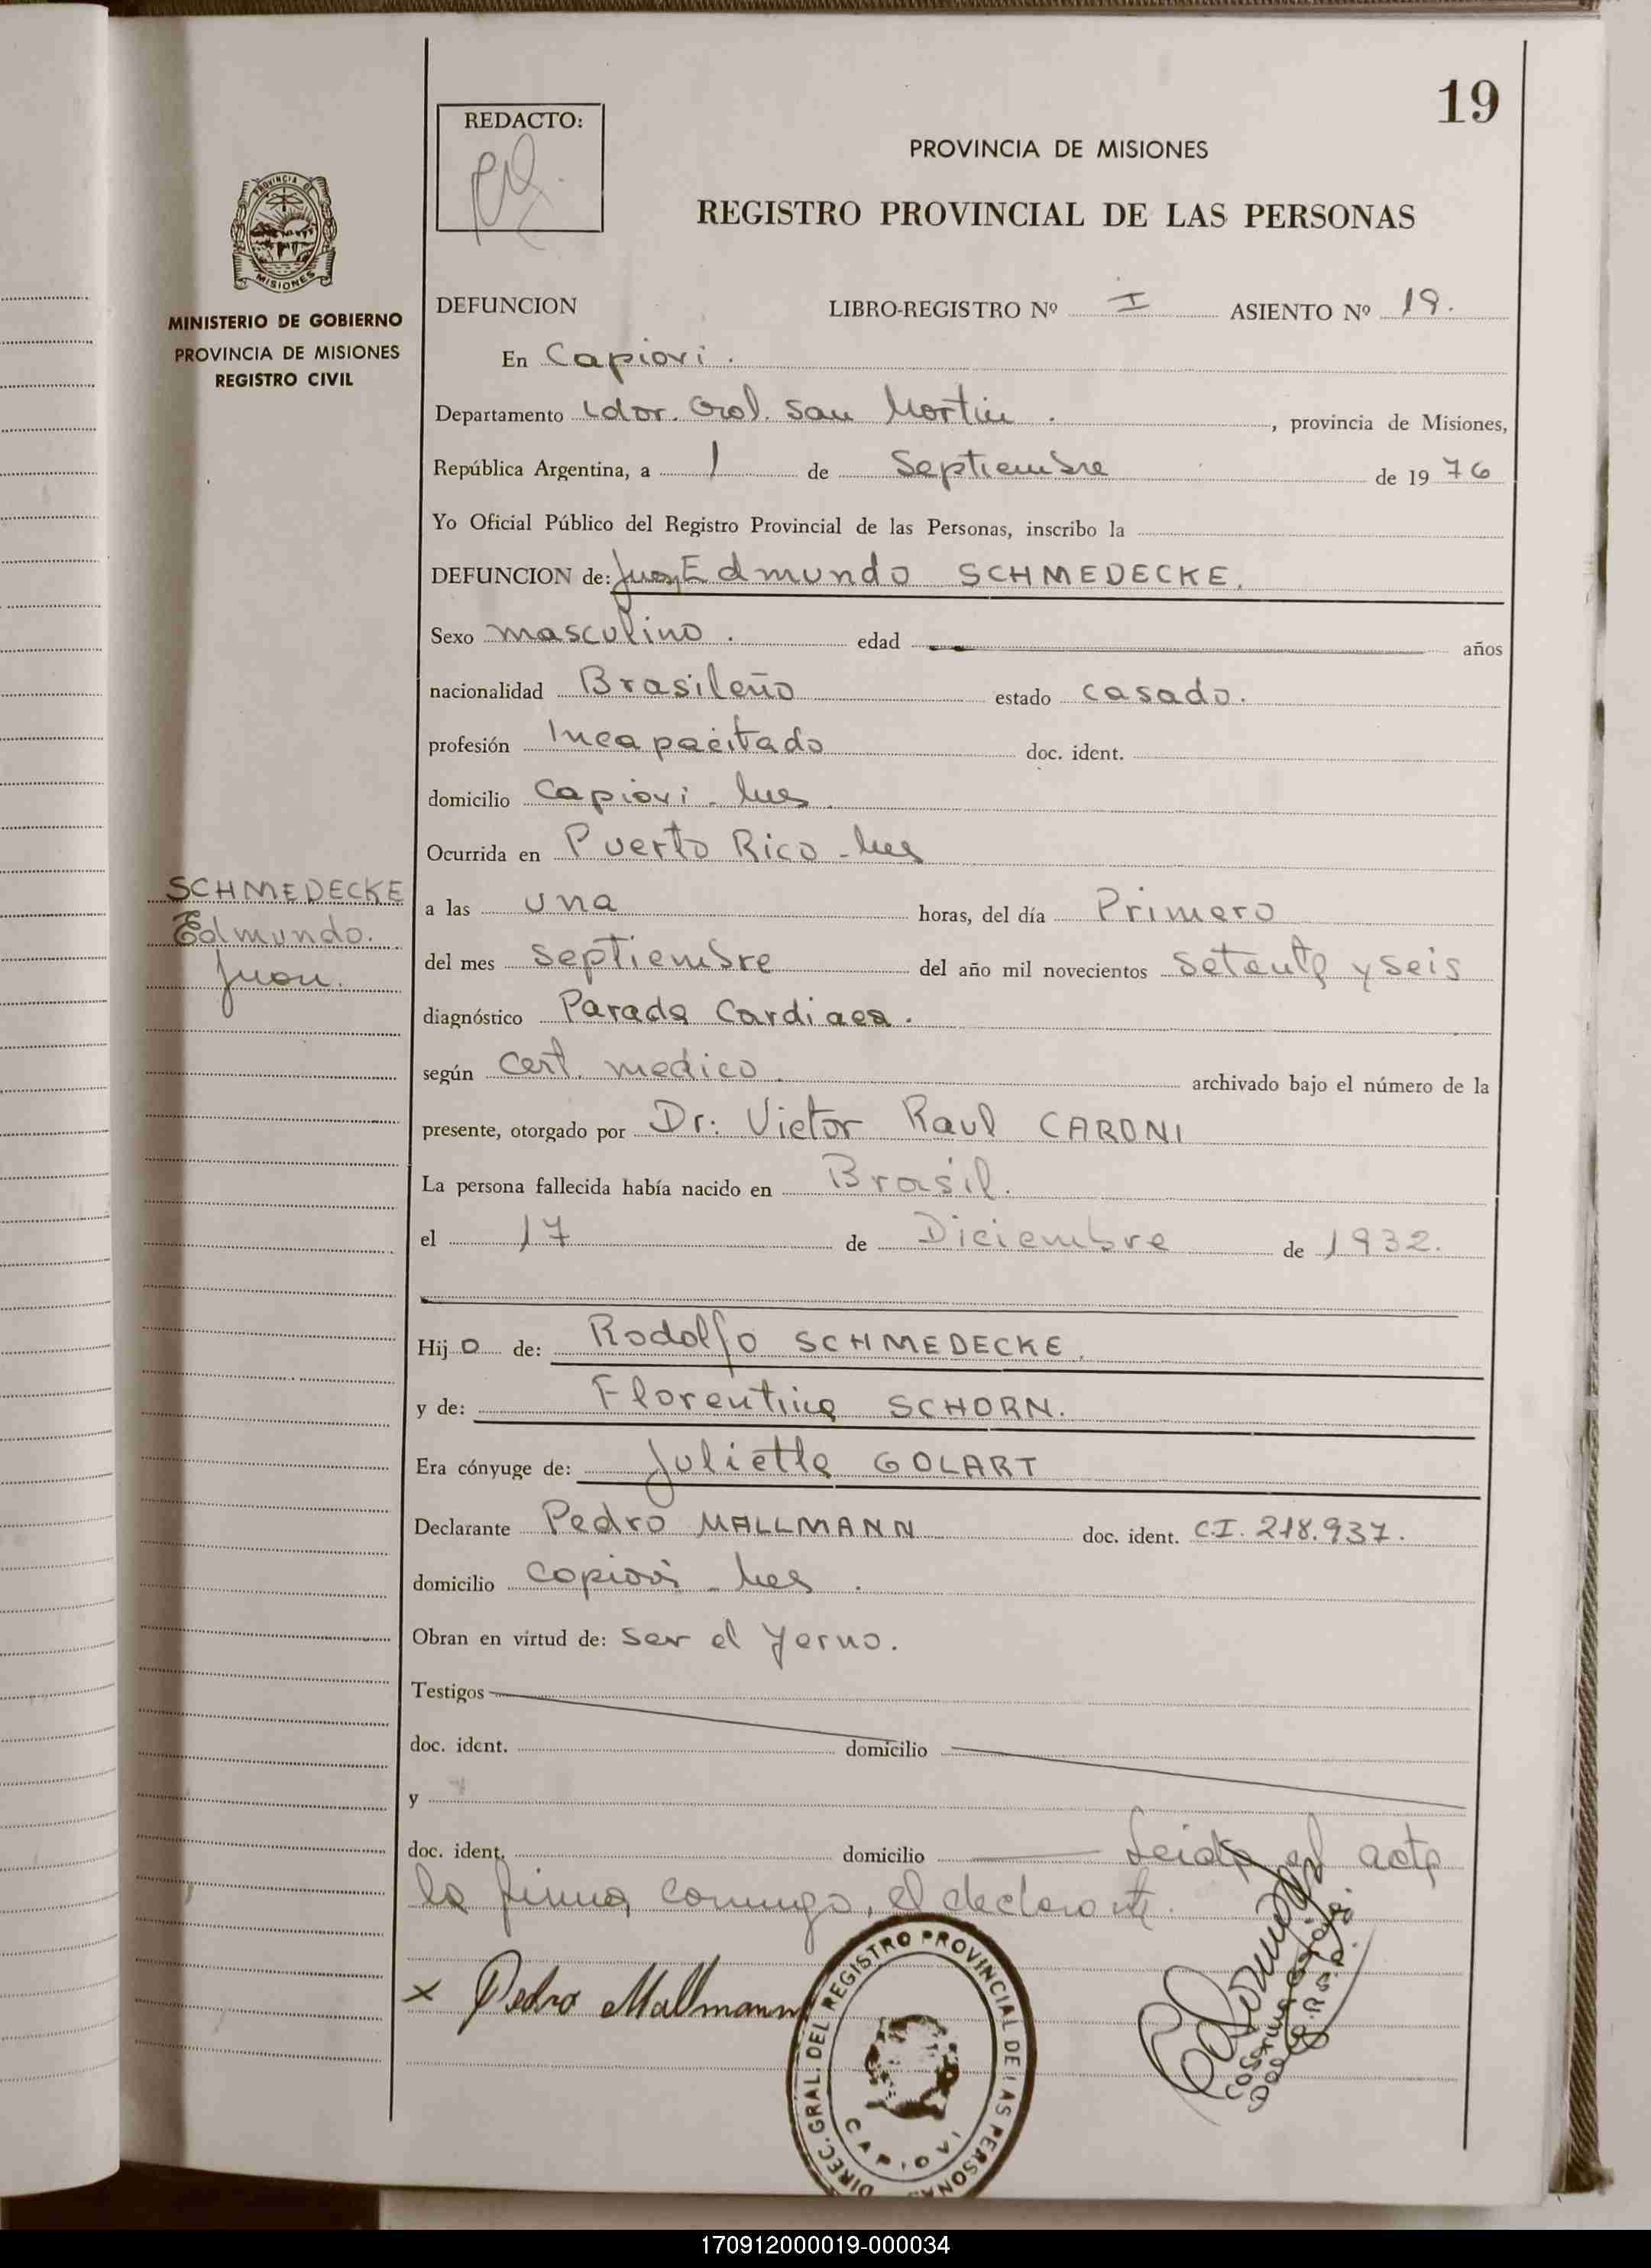 19
REDACTO:
PROVINCIA DE MISIONES
REGISTRO PROVINCIAL DE LAS PERSONAS
PROVINCIA DE
MISIONES
MINISTERIO DE GOBIERNO
PROVINCIA DE MISIONES
REGISTRO CIVIL
DEFUNCION LIBRO-REGISTRO Nº I ASIENTO Nº 19.
En Capiovi.
Departamento Ldor. Gral. San Martin. , provincia de Misiones,
República Argentina, a 1 de Septiembre de 1976
Yo Oficial Público del Registro Provincial de las Personas, inscribo la
DEFUNCION de: Juan Edmundo SCHMEDECKE.
Sexo masculino. edad años
nacionalidad Brasileño estado casado.
profesión Incapacitado doc. ident.
domicilio Capiovi - Mes.
Ocurrida en Puerto Rico - Mes
SCHMEDECKE
Edmundo.
Juan.
a las una horas, del día Primero
del mes septiembre del año mil novecientos setenta y seis
diagnóstico Parada Cardiaca.
según Cert. medico. archivado bajo el número de la
presente, otorgado por Dr: Victor Raul CARONI
La persona fallecida había nacido en Brasil.
el 17 de Diciembre de 1932.
Hijo de: Rodolfo SCHMEDECKE.
y de: Florentina SCHORN.
Era cónyuge de: Julietta GOLART
Declarante Pedro MALLMANN doc. ident. C.I. 218.937.
domicilio Capiovi - Mes.
Obran en virtud de: ser el Yerno.
Testigos
doc. ident. domicilio
y
doc. ident. domicilio Leida el acta
la firma, conmigo, el declarante.
x Pedro Mallmann
DIREC. GRAL. DEL REGISTRO PROVINCIAL DE LAS PERSONAS
CAPIOVI
170912000019-000034